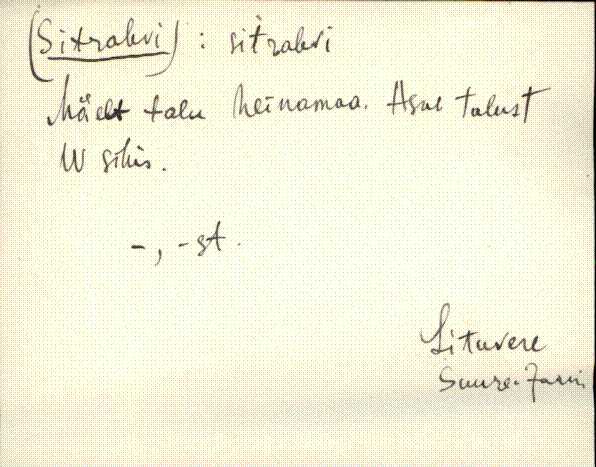 (Sitrahvi) : sitrahvi
Mäelt talu heinamaa. Asue talust
W sihis.
-, -st.
Lituvere
Suure-Jaani